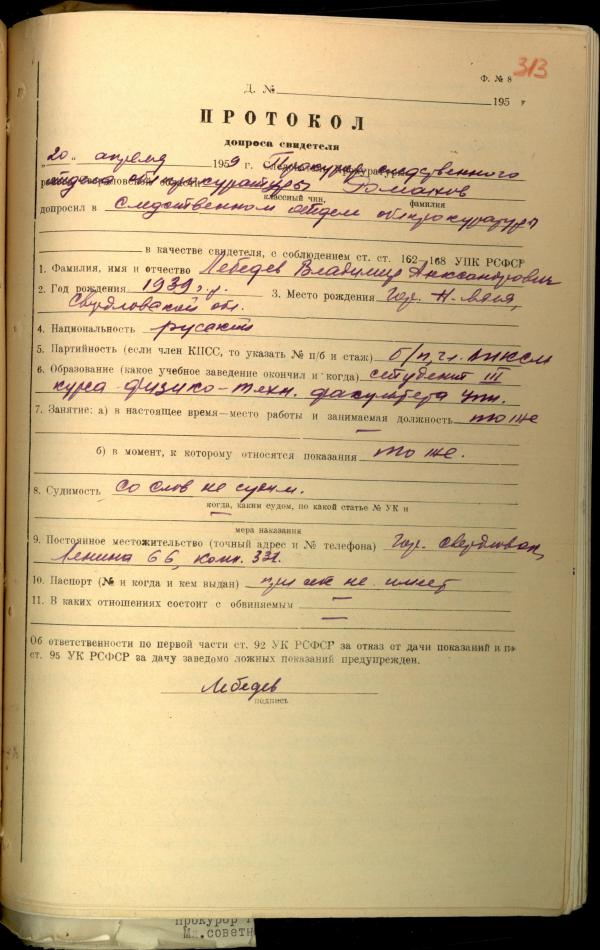 313
Ф. № 8
Д. № 195
ПРОТОКОЛ
допроса свидетеля
20 " апреля 1959 г. Прокурор следственного
отдела облпрокуратуры Романов
классный чин, фамилия
допросил в следственном отделе облпрокуратуры
в качестве свидетеля, с соблюдением ст. ст. 162–168 УПК РСФСР
1. Фамилия, имя и отчество Лебедев Владимир Александрович
2. Год рождения 1939 г.р. 3. Место рождения Гор. Н-Ляля,
Свердловской обл.
4. Национальность русский
5. Партийность (если член КПСС, то указать № п/б и стаж) б/п, чл. ВЛКСМ
6. Образование (какое учебное заведение окончил и когда) студент III
курса физико-техн. факультета УПИ.
7. Занятие: а) в настоящее время—место работы и занимаемая должность то же
—
б) в момент, к которому относятся показания то же.
8. Судимость со слов не судим.
когда, каким судом, по какой статье № УК и
мера наказания
9. Постоянное местожительство (точный адрес и № телефона) Гор. Свердловск,
Ленина 66, комн. 331.
10. Паспорт (№ и когда и кем выдан) при себе не имеет
11. В каких отношениях состоит с обвиняемым —
—
Об ответственности по первой части ст. 92 УК РСФСР за отказ от дачи показаний и по
ст. 95 УК РСФСР за дачу заведомо ложных показаний предупрежден.
Лебедев
подпись
Прокурор